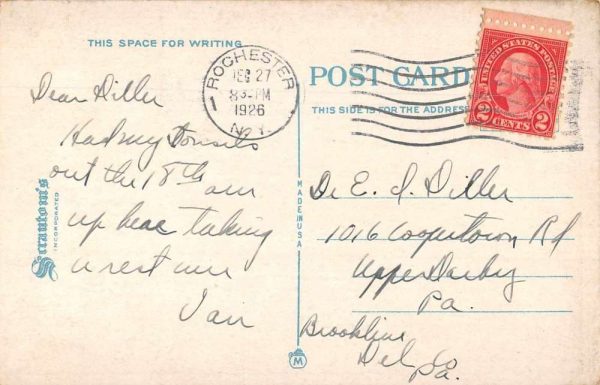 THIS SPACE FOR WRITING
ROCHESTER
DEC 27
8 30 PM
1926
N.Y.
POST CARD
THIS SIDE IS FOR THE ADDRESS
UNITED STATES POSTAGE
2 CENTS 2
Dear Diller
Had my Tonsils
out the 18th am
up hear taking
a rest
Scrantom's
INCORPORATED
MADE IN USA
M
Dr E. I. Diller
1016 Coopertown Rd
Upper Darby
Pa.
Brookline
Del Co
Pa.